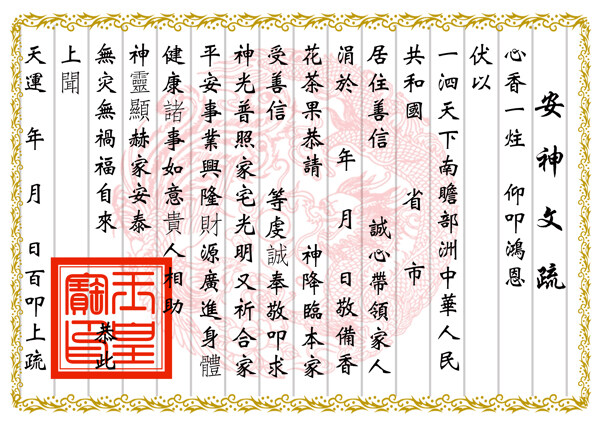 安神文疏
心香一炷 仰叩鴻恩
伏以
一泗天下南瞻部洲中華人民
共和國 省 市
居住善信 誠心帶領家人
涓於 年 月 日敬備香
花茶果恭請 神降臨本家
受善信 等虔誠奉敬叩求
神光普照家宅光明又祈合家
平安事業興隆財源廣進身體
健康諸事如意貴人相助
神靈顯赫家安泰
無灾無禍福自來 恭此
上聞
天運 年 月 日百叩上疏
玉皇寶印